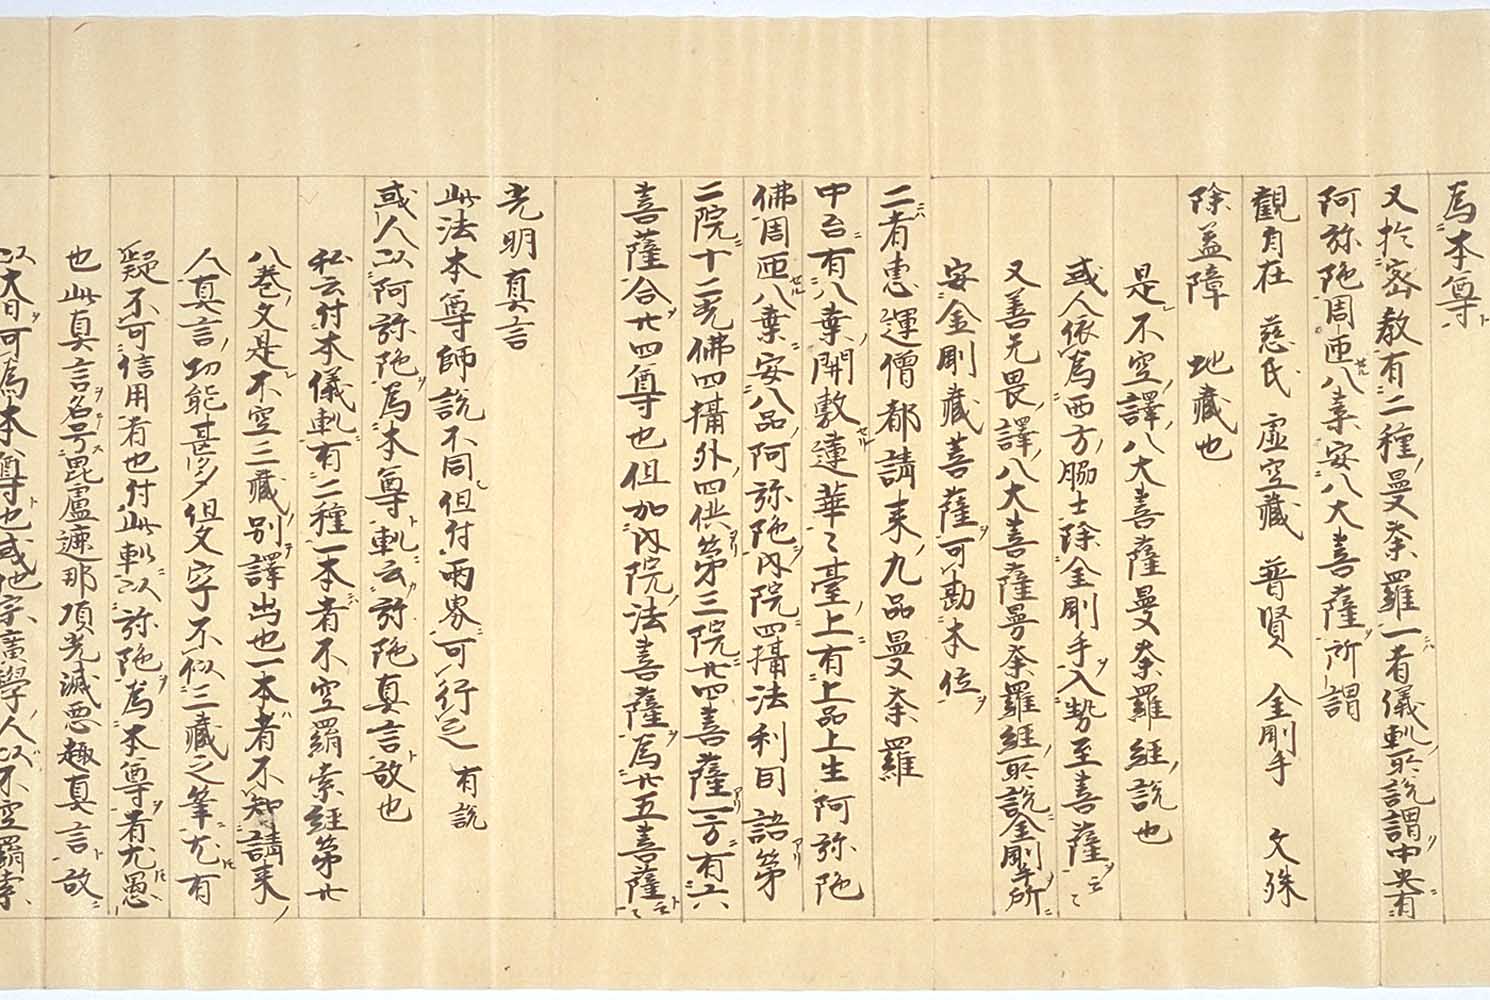 為本尊ト
又於密教有二種曼荼羅一者儀軌所説謂中央有
阿弥陀周匝八葉安八大菩薩所謂
觀自在　慈氏　虚空藏　普賢　金剛手　文殊
除蓋障　地藏也
是不空譯八大菩薩曼荼羅經説也
或人依為西方脇士除金剛手入勢至菩薩云々
又善无畏譯八大菩薩曼荼羅經所説金剛手所
安金剛藏菩薩可勘本位
二者恵運僧都請来九品曼荼羅
中台有八葉開敷蓮華々臺上有上品上生阿弥陀
佛周匝八葉安八品阿弥陀内院四攝法利因語第
二院十二光佛四攝外四供第三院廿四菩薩一方有六
菩薩合廿四尊也但加内院法菩薩為廿五菩薩云々
光明真言
此法本尊師説不同但付両界可行之　有説
或人以阿弥陀為本尊軌云弥陀真言故也
私云付本儀軌有二種一本者不空羂索經第廿
八巻文是不空三藏別譯出也一本者不知請来
人真言功能甚多但文字不似三藏之筆尤有
疑不可信用者也付此軌以弥陀為本尊者尤愚
也此真言名号毘盧遮那項光滅悪趣真言故
以大日可為本尊也或他宗廣學人以不空羂索